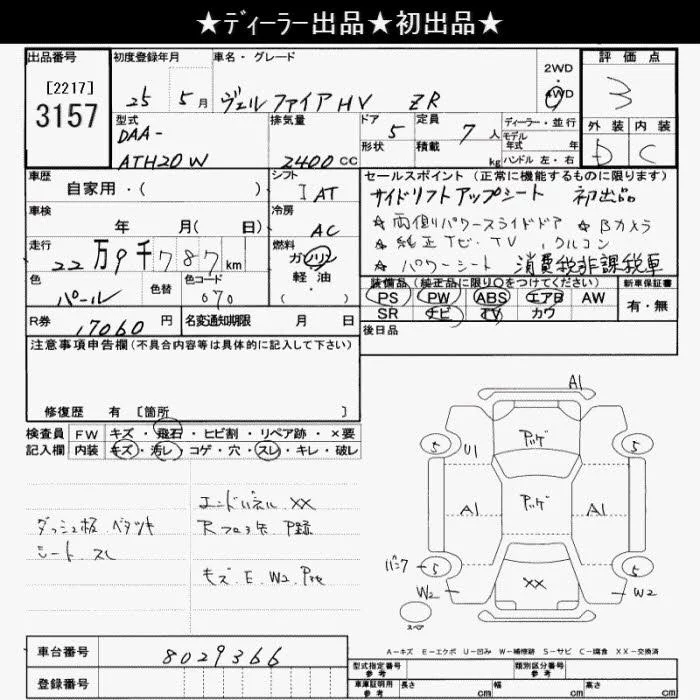 ★ディーラー出品★初出品★
出品番号 初度登録年月 車名・グレード 2WD 評価点
[2217]
3157
25 5月 ヴェルファイアHV ZR 4WD 3
型式 排気量 ドア 定員 ディーラー・並行 外装 内装
DAA- 5 7人 モデル 年式 年 D C
ATH20W 2400cc 形状 積載 kg ハンドル 左・右
車歴 シフト セールスポイント (正常に機能するものに限ります)
自家用・( ) IAT サイドリフトアップシート 初出品
車検 冷房 ★両側パワースライドドア ★Bカメラ
年 月( 日) AC ★純正ナビ・TV クルコン
走行 燃料 ★パワーシート 消費税非課税車
22万9千787km ガソリン
色 色替 色コード 軽油・ 装備品 (純正品に限り○をつけてください) 新車保証書
パール 070 PS PW ABS エアB AW 有・無
SR ナビ TV カワ
R券 17060円 名変通知期限 月 日 後日品
注意事項申告欄 (不具合内容等は具体的に記入して下さい)
修復歴 有 [箇所 ]
検査員 FW キズ・飛石・ヒビ割・リペア跡・×要
記入欄 内装 キズ・汚レ・コゲ・穴・スレ・キレ・破レ
エンドパネル XX
ダッシュ板 ベタツキ
シート スレ
キズ.E.W2.
A1
5 U1 5
A1 A1
パンク 5 5
W2 XX W2
スペア
A-キズ E-エクボ U-凹み W-補修跡 S-サビ C-腐食 XX-交換済
車台番号 8029366
登録番号
型式指定番号 参考 類別区分番号 参考
車庫証明用 参考 長さ cm 幅 cm 高さ cm